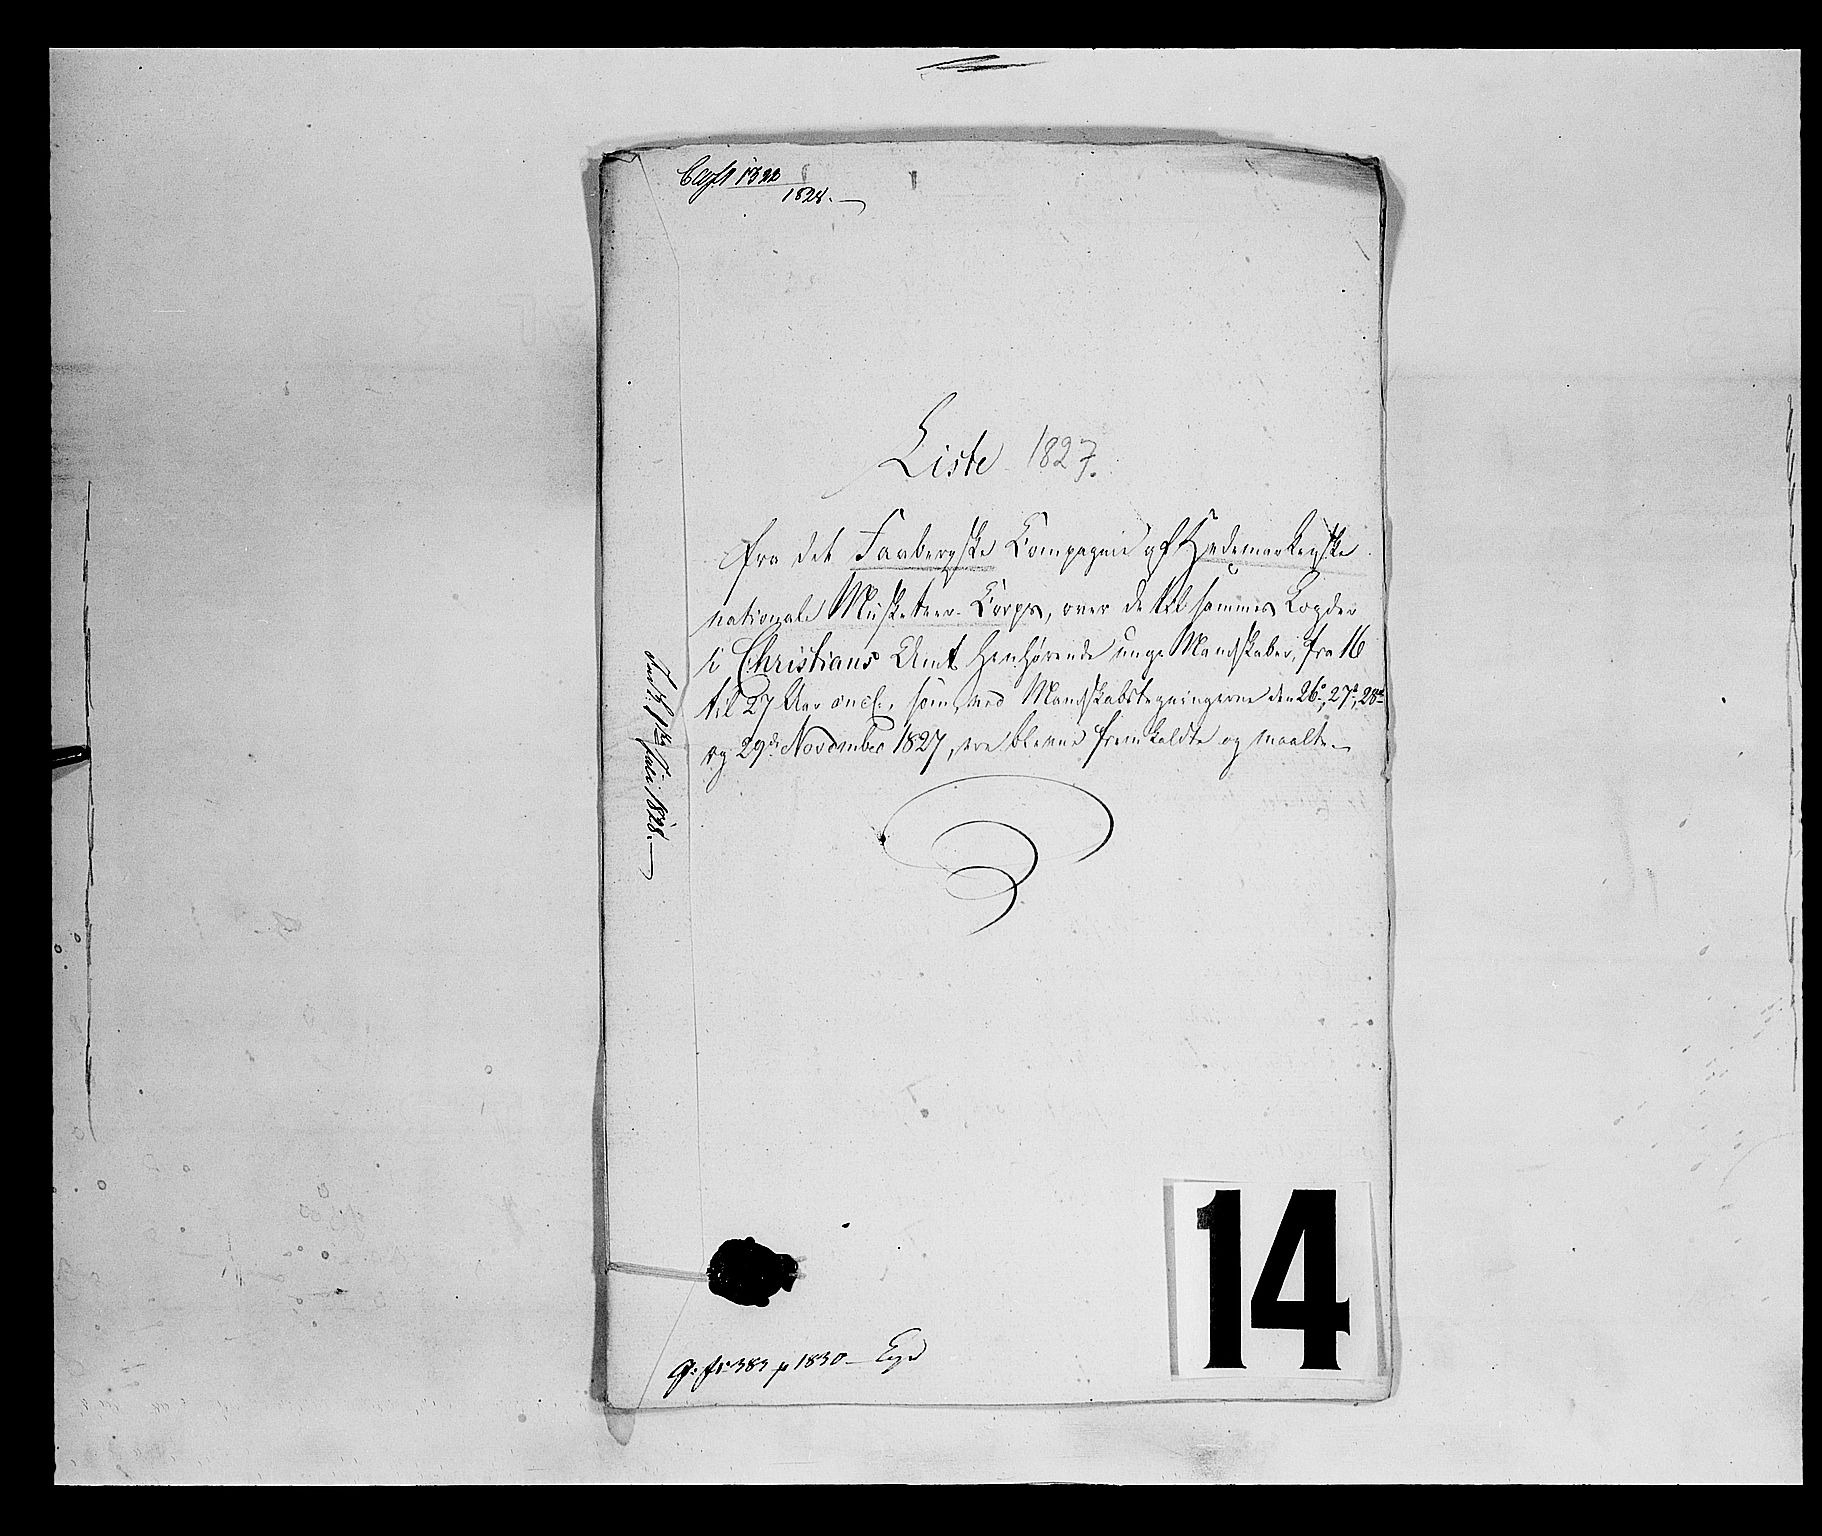 1822
1828.
Liste 1827.
fra det Faabergske Compagnie af Hedemarkenske
nationale Musketeer-Corps, over de til sammes Lægder
i Christians Amt henhørende unge Mandskaber, fra 16
til 27 Aar incl:, som, ved Mandskabstegningerne den 26de, 27de, 28de
og 29de November 1827, ere blevne fremkaldte og maalte.
Juli 1828.
383 p 1830
14